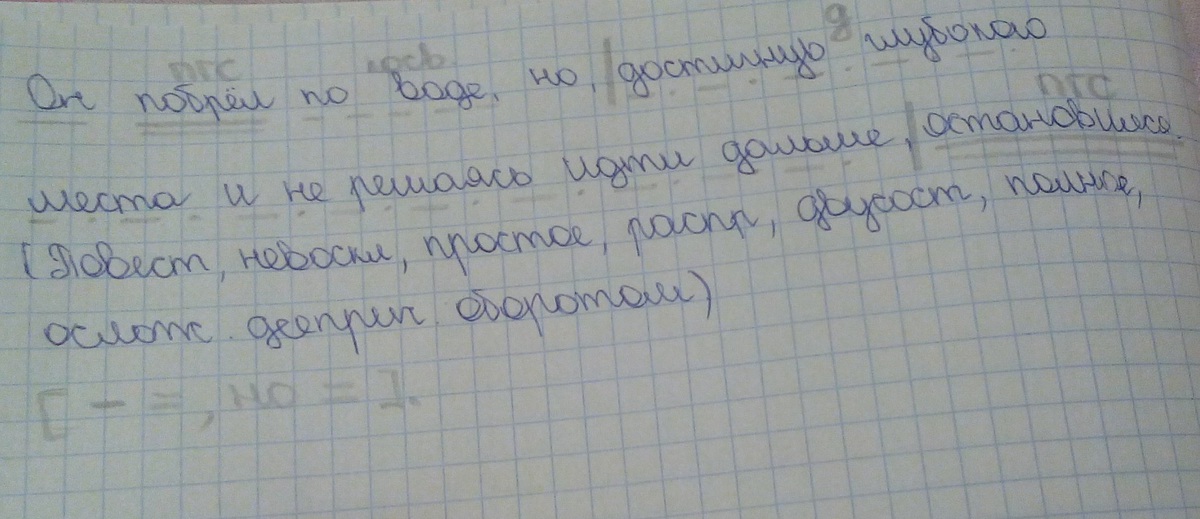 пгс д
Он побрёл по воде, но, достигнув глубокого
пгс
места и не решаясь идти дальше, остановился.
(Повест, невоскл, простое, распр, двусост, полное,
ослож. дееприч. оборотом)
[ – = , но = ].